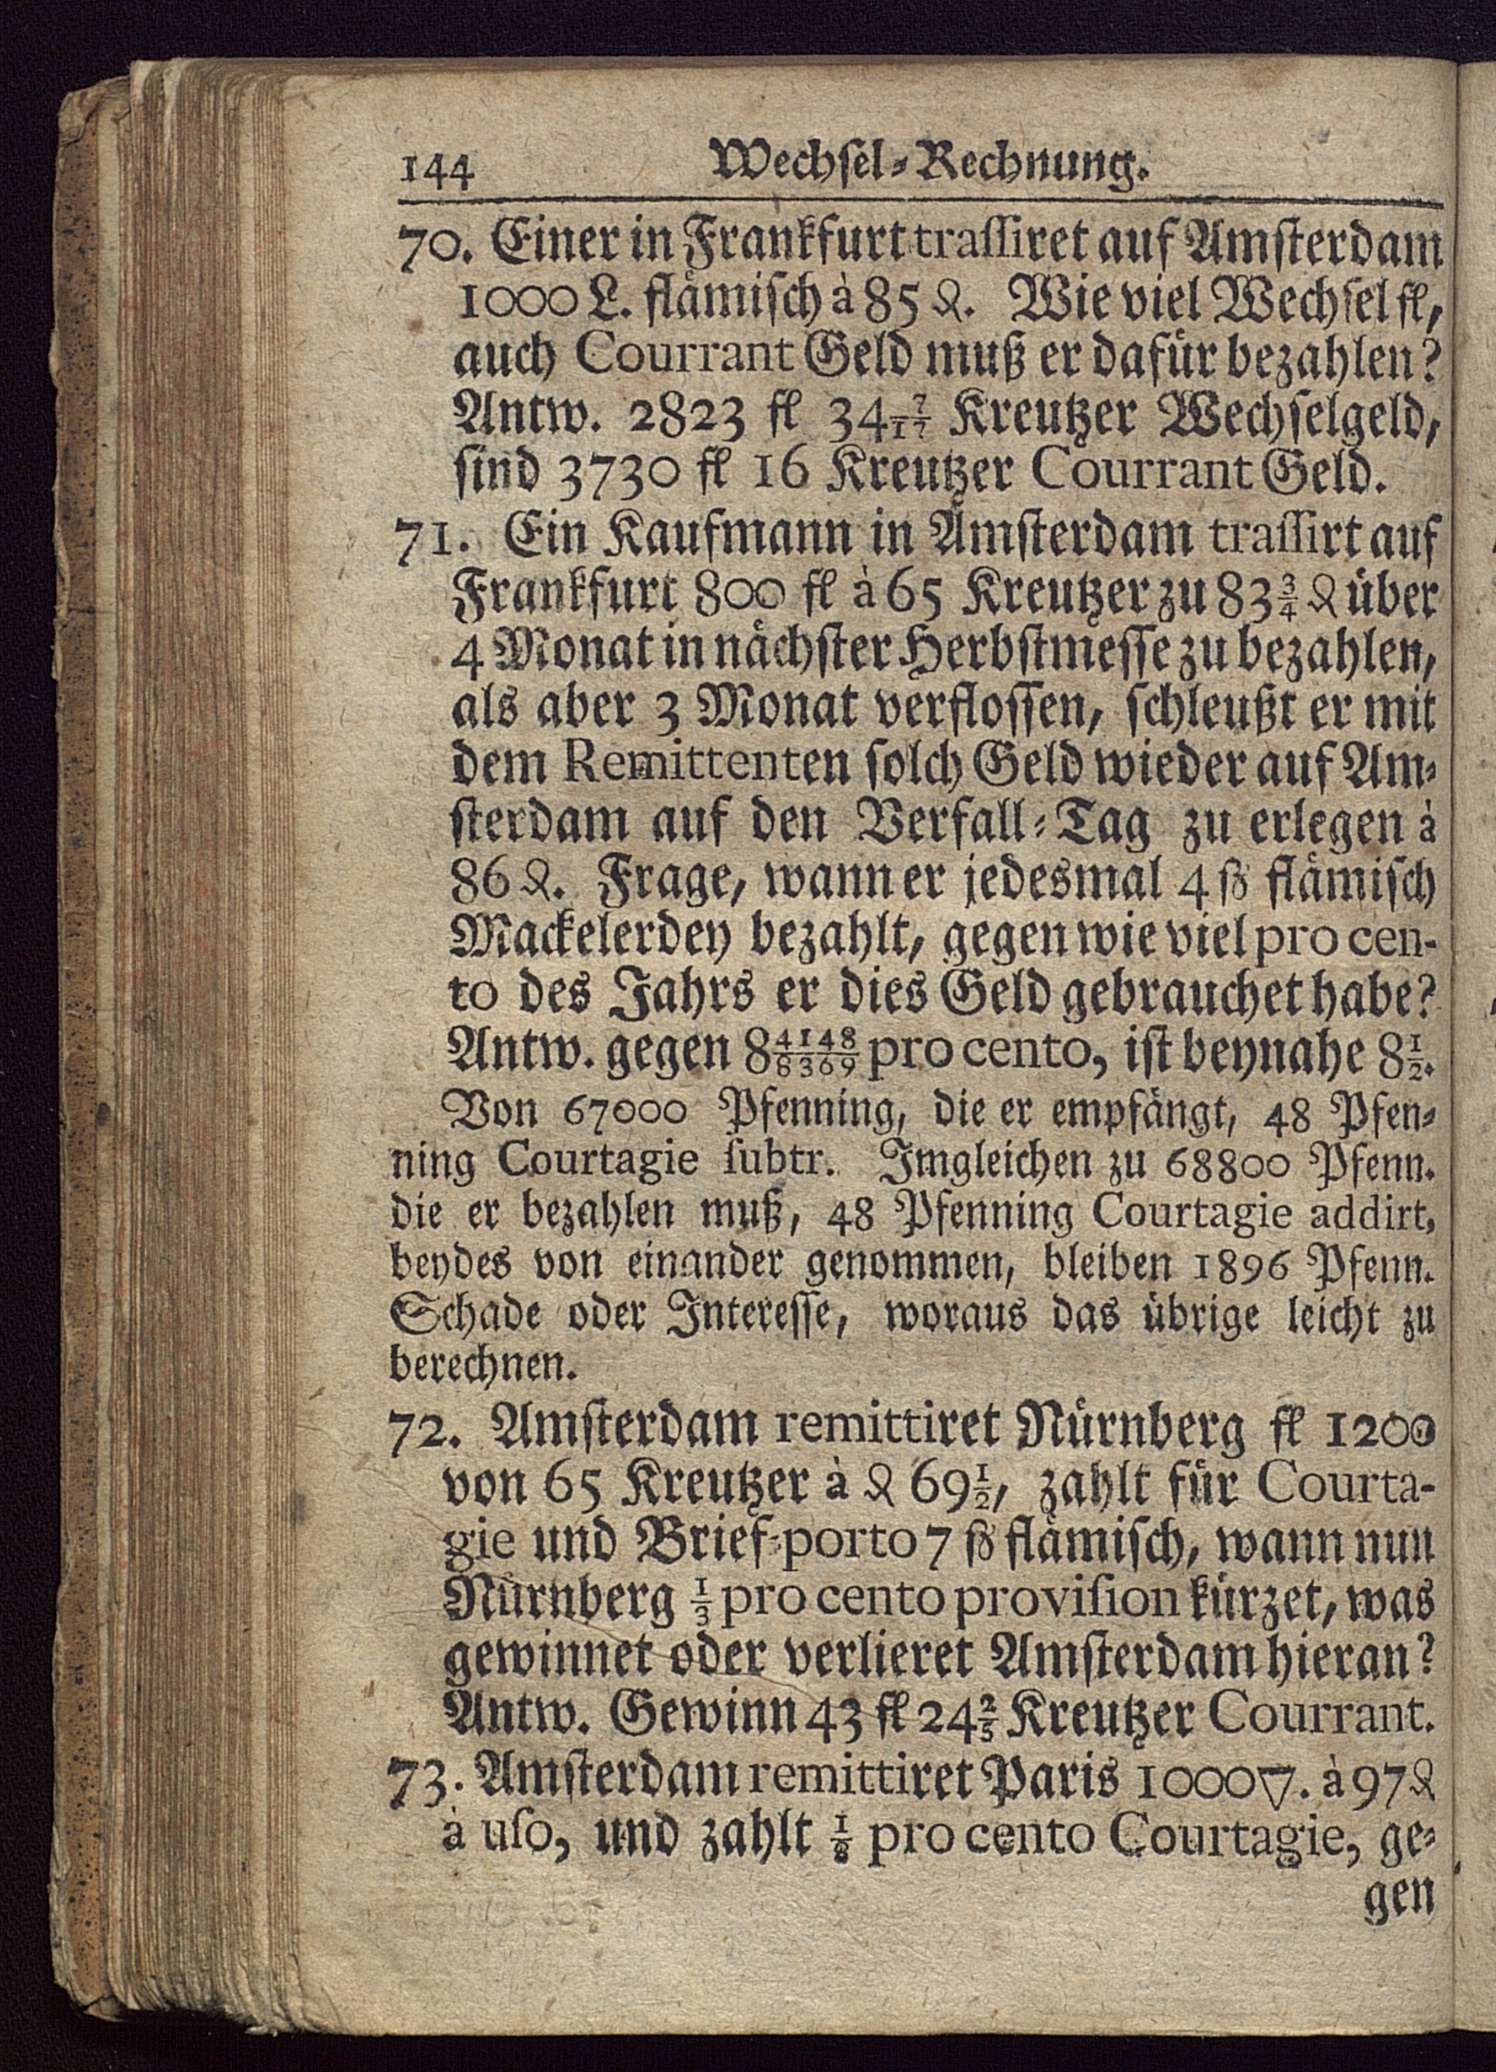 144 Wechſel-Rechnung.
70. Einer in Frankfurt traſſiret auf Amſterdam
1000 L. flämiſch à 85 ₰. Wie viel Wechſel fl,
auch Courrant Geld muß er dafür bezahlen?
Antw. 2823 fl 34 7/17 Kreutzer Wechſelgeld,
ſind 3730 fl 16 Kreutzer Courrant Geld.
71. Ein Kaufmann in Amſterdam traſſirt auf
Frankfurt 800 fl à 65 Kreutzer zu 83 3/4 ₰ über
4 Monat in nächſter Herbſtmeſſe zu bezahlen,
als aber 3 Monat verfloſſen, ſchleußt er mit
dem Remittenten ſolch Geld wieder auf Am-
ſterdam auf den Verfall-Tag zu erlegen à
86 ₰. Frage, wann er jedesmal 4 ß flämiſch
Mackelerdey bezahlt, gegen wie viel pro cen-
to des Jahrs er dies Geld gebrauchet habe?
Antw. gegen 8 4148/8369 pro cento, iſt beynahe 8 1/2.
Von 67000 Pfenning, die er empfängt, 48 Pfen-
ning Courtagie ſubtr. Imgleichen zu 68800 Pfenn.
die er bezahlen muß, 48 Pfenning Courtagie addirt,
beydes von einander genommen, bleiben 1896 Pfenn.
Schade oder Intereſſe, woraus das übrige leicht zu
berechnen.
72. Amſterdam remittiret Nürnberg fl 1200
von 65 Kreutzer à ₰ 69 1/2, zahlt für Courta-
gie und Brief-porto 7 ß flämiſch, wann nun
Nürnberg 1/3 pro cento proviſion kürzet, was
gewinnet oder verlieret Amſterdam hieran?
Antw. Gewinn 43 fl 24 2/5 Kreutzer Courrant.
73. Amſterdam remittiret Paris 1000 ▽. à 97 ₰
à uſo, und zahlt 1/8 pro cento Courtagie, ge-
gen